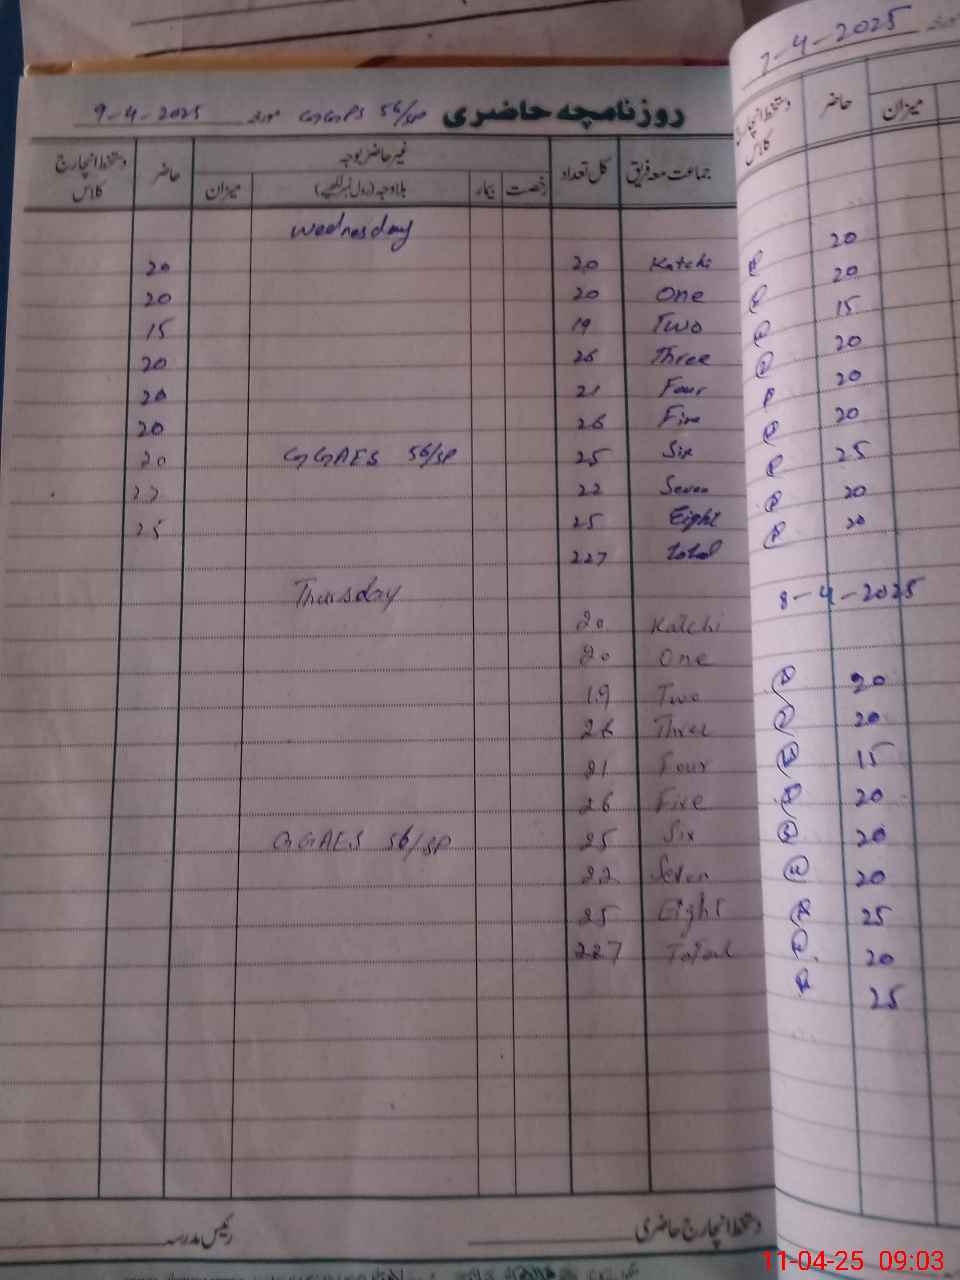 7-4-2025
روزنامچہ حاضری GGPS 56/SP مورخہ 9-4-2025
جماعت معہ فریق کل تعداد غیر حاضر بوجہ حاضر دستخط انچارج کلاس
رخصت بیمار بلاوجہ (رول نمبر لکھیے) میزان
Wednesday
Katchi 20 20
One 20 20
Two 19 15
Three 26 20
Four 21 20
Five 26 20
Six 25 GGAES 56/SP 20
Seven 22 22
Eight 25 25
Total 227
Thursday
Katchi 20
One 20
Two 19
Three 26
Four 21
Five 26
Six 25 GGAES 56/SP
Seven 22
Eight 25
Total 227
دستخط انچارج حاضری رئیس مدرسہ
میزان حاضر دستخط انچارج کلاس
20
20
15
20
20
20
25
20
20
8-4-2025
20
20
15
20
20
20
25
20
25
11-04-25 09:03